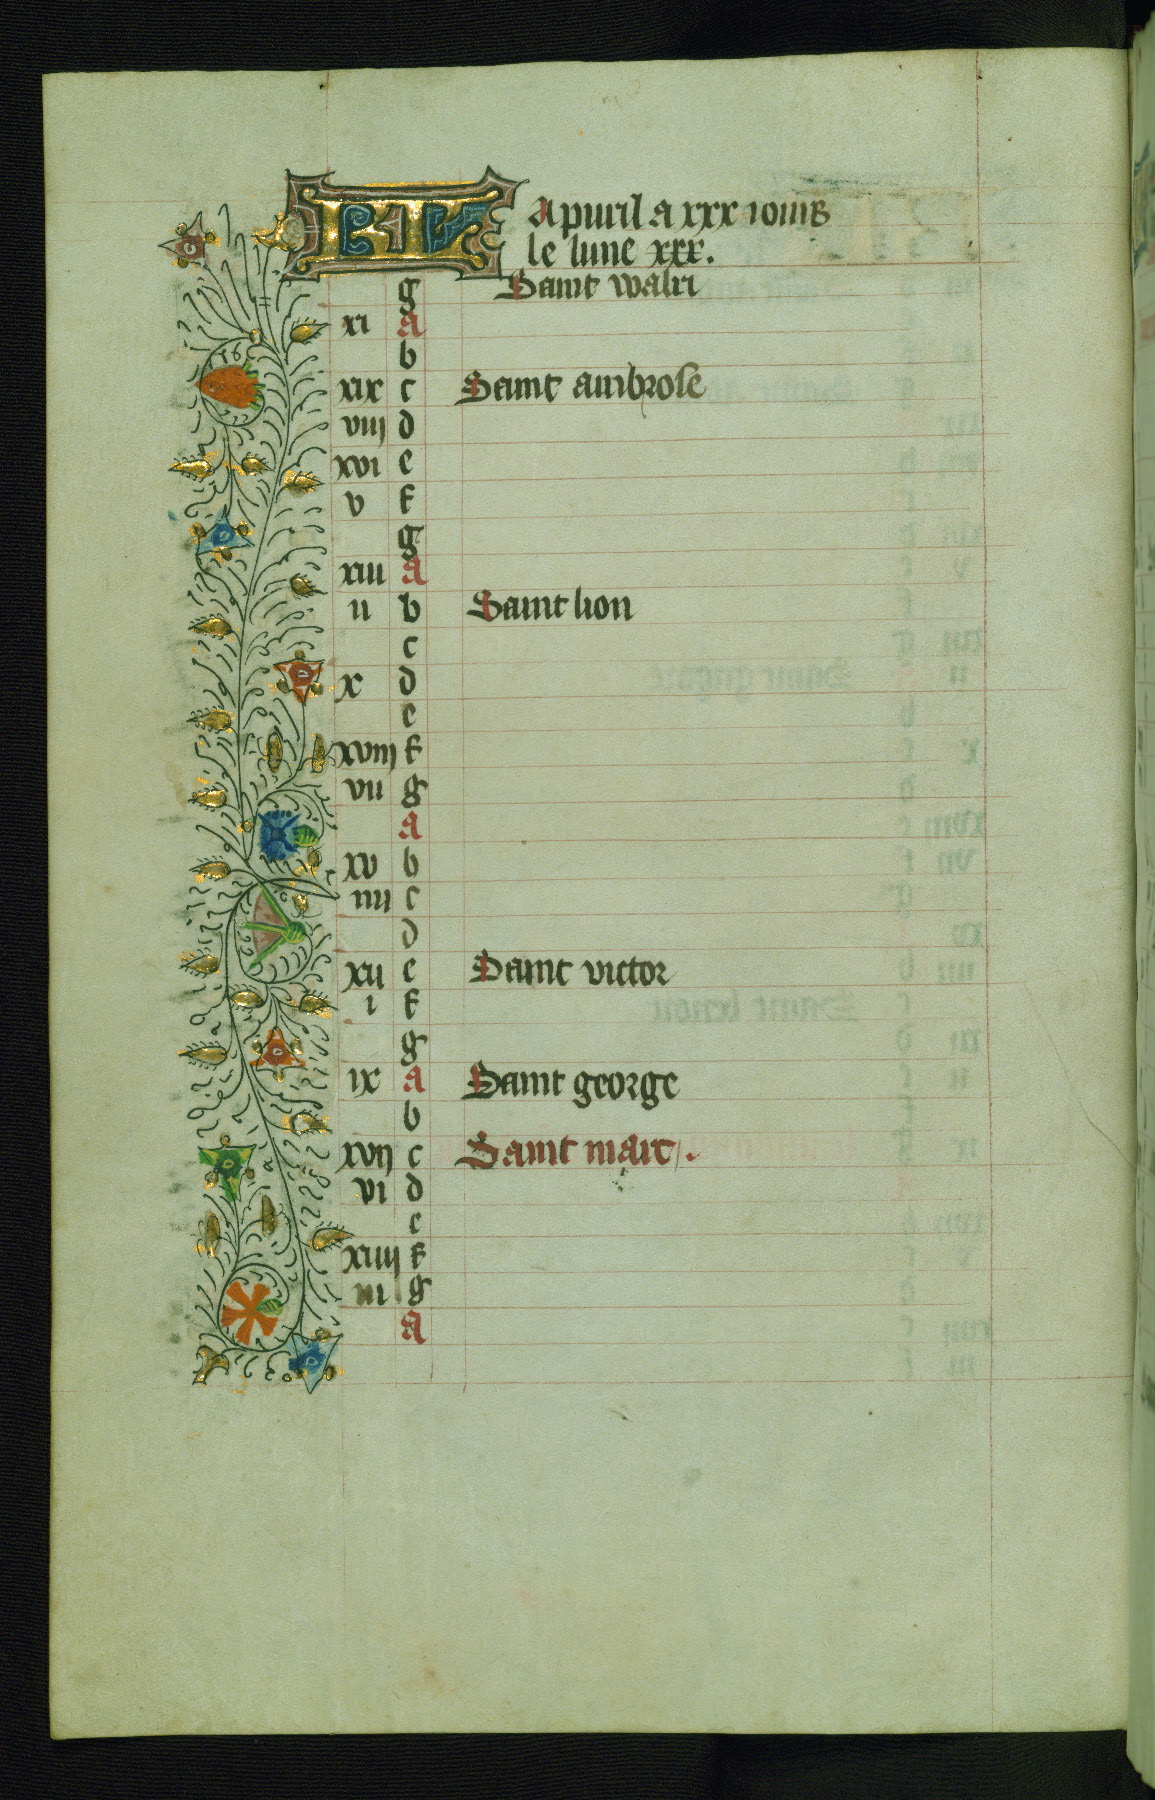 KL Apuril a xxx iours
le lune xxx.
g Saint walri
xi a
b
xix c Saint ambrose
viii d
xvi e
v f
g
xiii a
ii b Saint lion
c
x d
e
xviii f
vii g
a
xv b
iiii c
d
xii e Saint victor
i f
g
ix a Saint george
b
xvii c Saint marc.
vi d
e
xiiii f
iii g
a